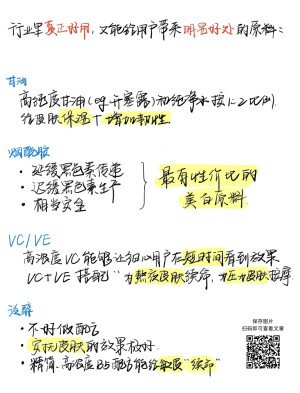 行业里真正好用,又能给用户带来明显好处的原料:
甘油
高浓度甘油(eg.开塞露)和纯净水按1:2比例,
给皮肤保湿+增加韧性.
烟酰胺
• 延缓黑色素传递
• 迟缓黑色素生产
• 相当安全
最有性价比的
美白原料
VC/VE
高浓度VC能够让细心用户在短时间看到效果
VC+VE搭配"为熬夜皮肤续命,为压力皮肤按摩
泛醇
• 不好做配方
• 安抚皮肤的效果极好.
• 精简、高浓度B5配方能给敏皮"续命"
保存图片
扫码即可查看文章